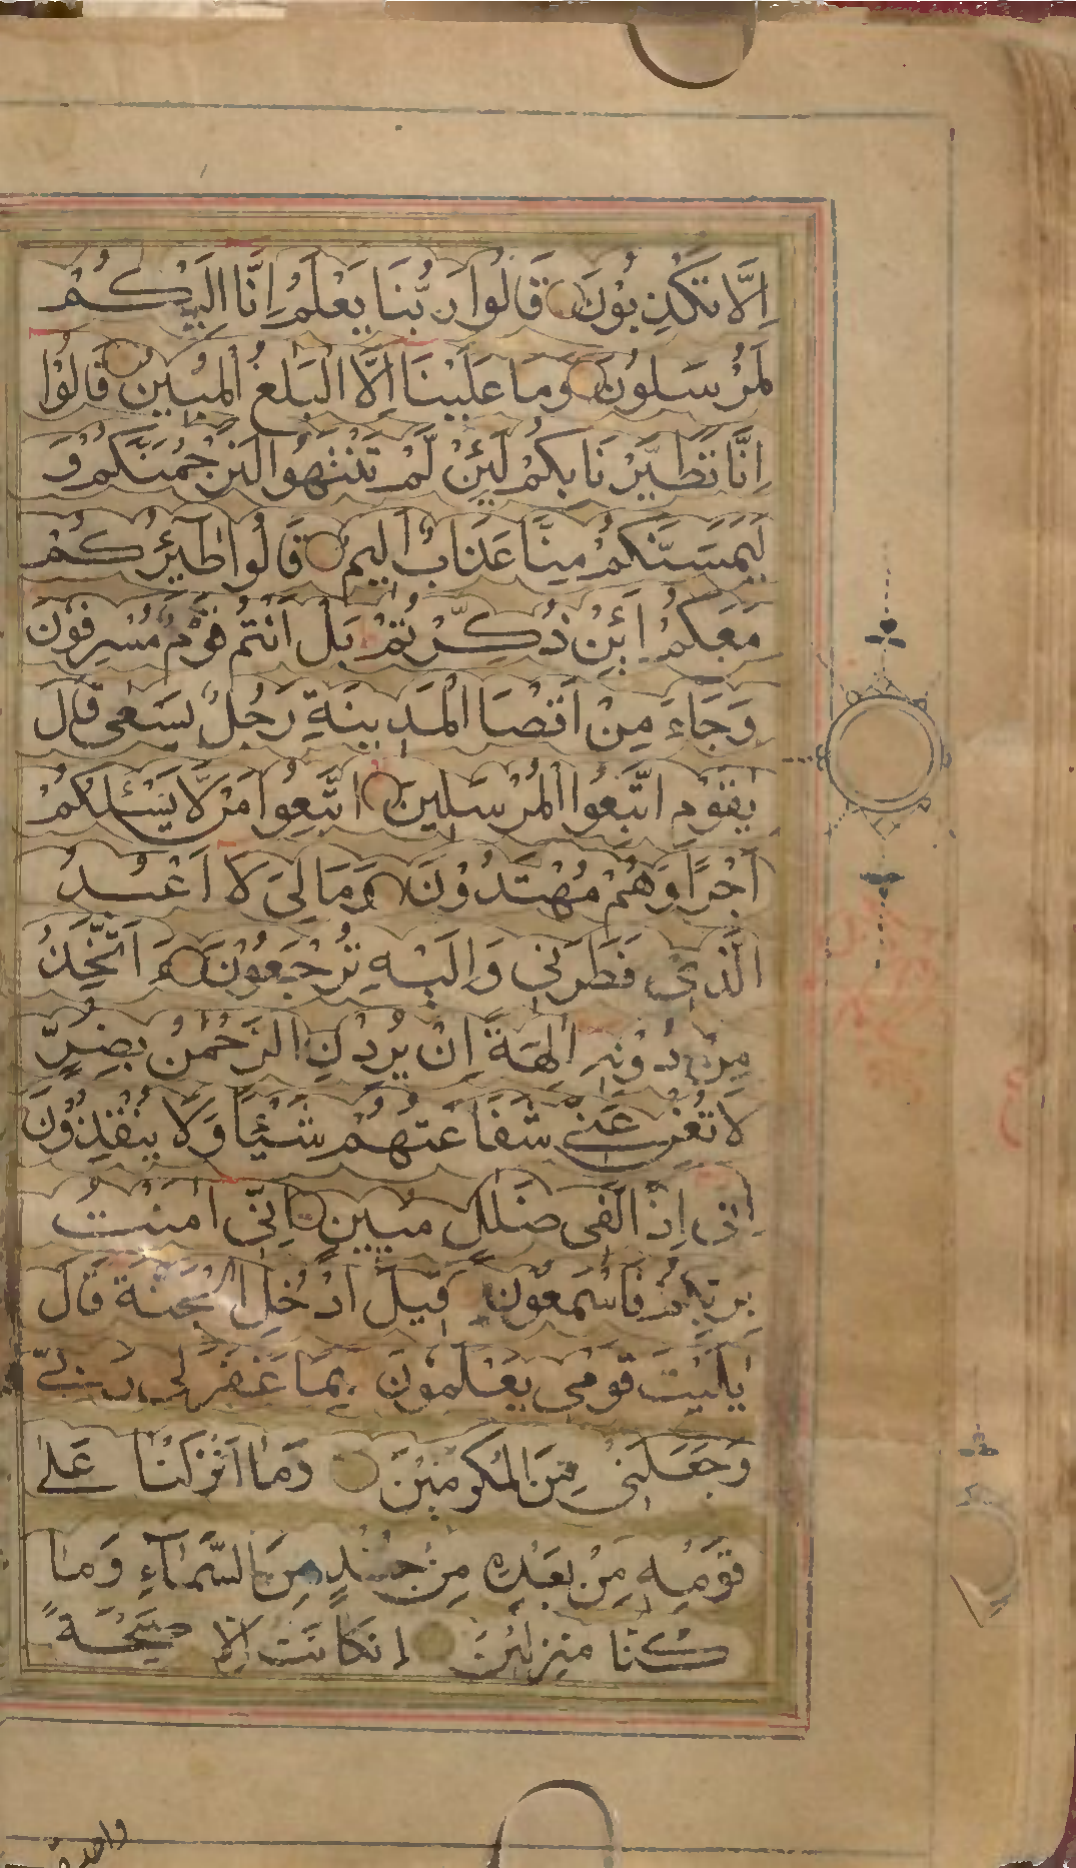 اِلَّا تَكْذِبُوْنَ قَالُوْا رَبُّنَا يَعْلَمُ اِنَّا اِلَيْكُمْ
لَمُرْسَلُوْنَ وَمَا عَلَيْنَا اِلَّا الْبَلٰغُ الْمُبِيْنُ قَالُوْا
اِنَّا تَطَيَّرْنَا بِكُمْ لَئِنْ لَّمْ تَنْتَهُوْا لَنَرْجُمَنَّكُمْ وَ
لَيَمَسَّنَّكُمْ مِنَّا عَذَابٌ اَلِيْمٌ قَالُوْا طَآئِرُكُمْ
مَعَكُمْ اَئِنْ ذُكِّرْتُمْ بَلْ اَنْتُمْ قَوْمٌ مُسْرِفُوْنَ
وَجَآءَ مِنْ اَقْصَا الْمَدِيْنَةِ رَجُلٌ يَسْعٰى قَالَ
يٰقَوْمِ اتَّبِعُوا الْمُرْسَلِيْنَ اتَّبِعُوْا مَنْ لَّا يَسْئَلُكُمْ
اَجْرًا وَهُمْ مُهْتَدُوْنَ وَمَا لِيَ لَا اَعْبُدُ
الَّذِيْ فَطَرَنِيْ وَاِلَيْهِ تُرْجَعُوْنَ ءَاَتَّخِذُ
مِنْ دُوْنِهٖ اٰلِهَةً اِنْ يُرِدْنِ الرَّحْمٰنُ بِضُرٍّ
لَا تُغْنِ عَنِّيْ شَفَاعَتُهُمْ شَيْئًا وَلَا يُنْقِذُوْنَ
اِنِّي اِذًا لَّفِي ضَلٰلٍ مُبِيْنٍ اِنِّي اٰمَنْتُ
بِرَبِّكُمْ فَاسْمَعُوْنِ قِيْلَ ادْخُلِ الْجَنَّةَ قَالَ
يٰلَيْتَ قَوْمِي يَعْلَمُوْنَ بِمَا غَفَرَ لِيْ رَبِّيْ
وَجَعَلَنِيْ مِنَ الْمُكْرَمِيْنَ وَمَا اَنْزَلْنَا عَلٰى
قَوْمِهٖ مِنْ بَعْدِهٖ مِنْ جُنْدٍ مِنَ السَّمَآءِ وَمَا
كُنَّا مُنْزِلِيْنَ اِنْ كَانَتْ اِلَّا صَيْحَةً
واحدة